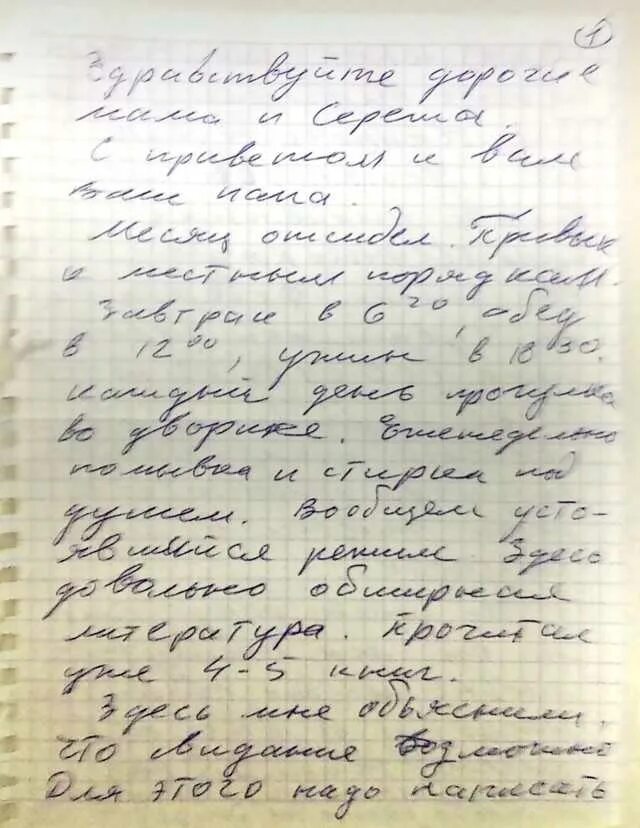 1
Здравствуйте дорогие
мама и Сережа.
С приветом к вам
Ваш папа.
Месяц отсидел. Привык
к местным порядкам.
Завтрак в 6 20, обед
в 12 00, ужин в 18 30.
каждый день прогулка
во дворике. Еженедельно
помывка и стирка под
душем. Вообщем усто-
явшийся режим. Здесь
довольно обширная
литература. Прочитал
уже 4-5 книг.
Здесь мне объяснили,
что свидание возможно
Для этого надо написать